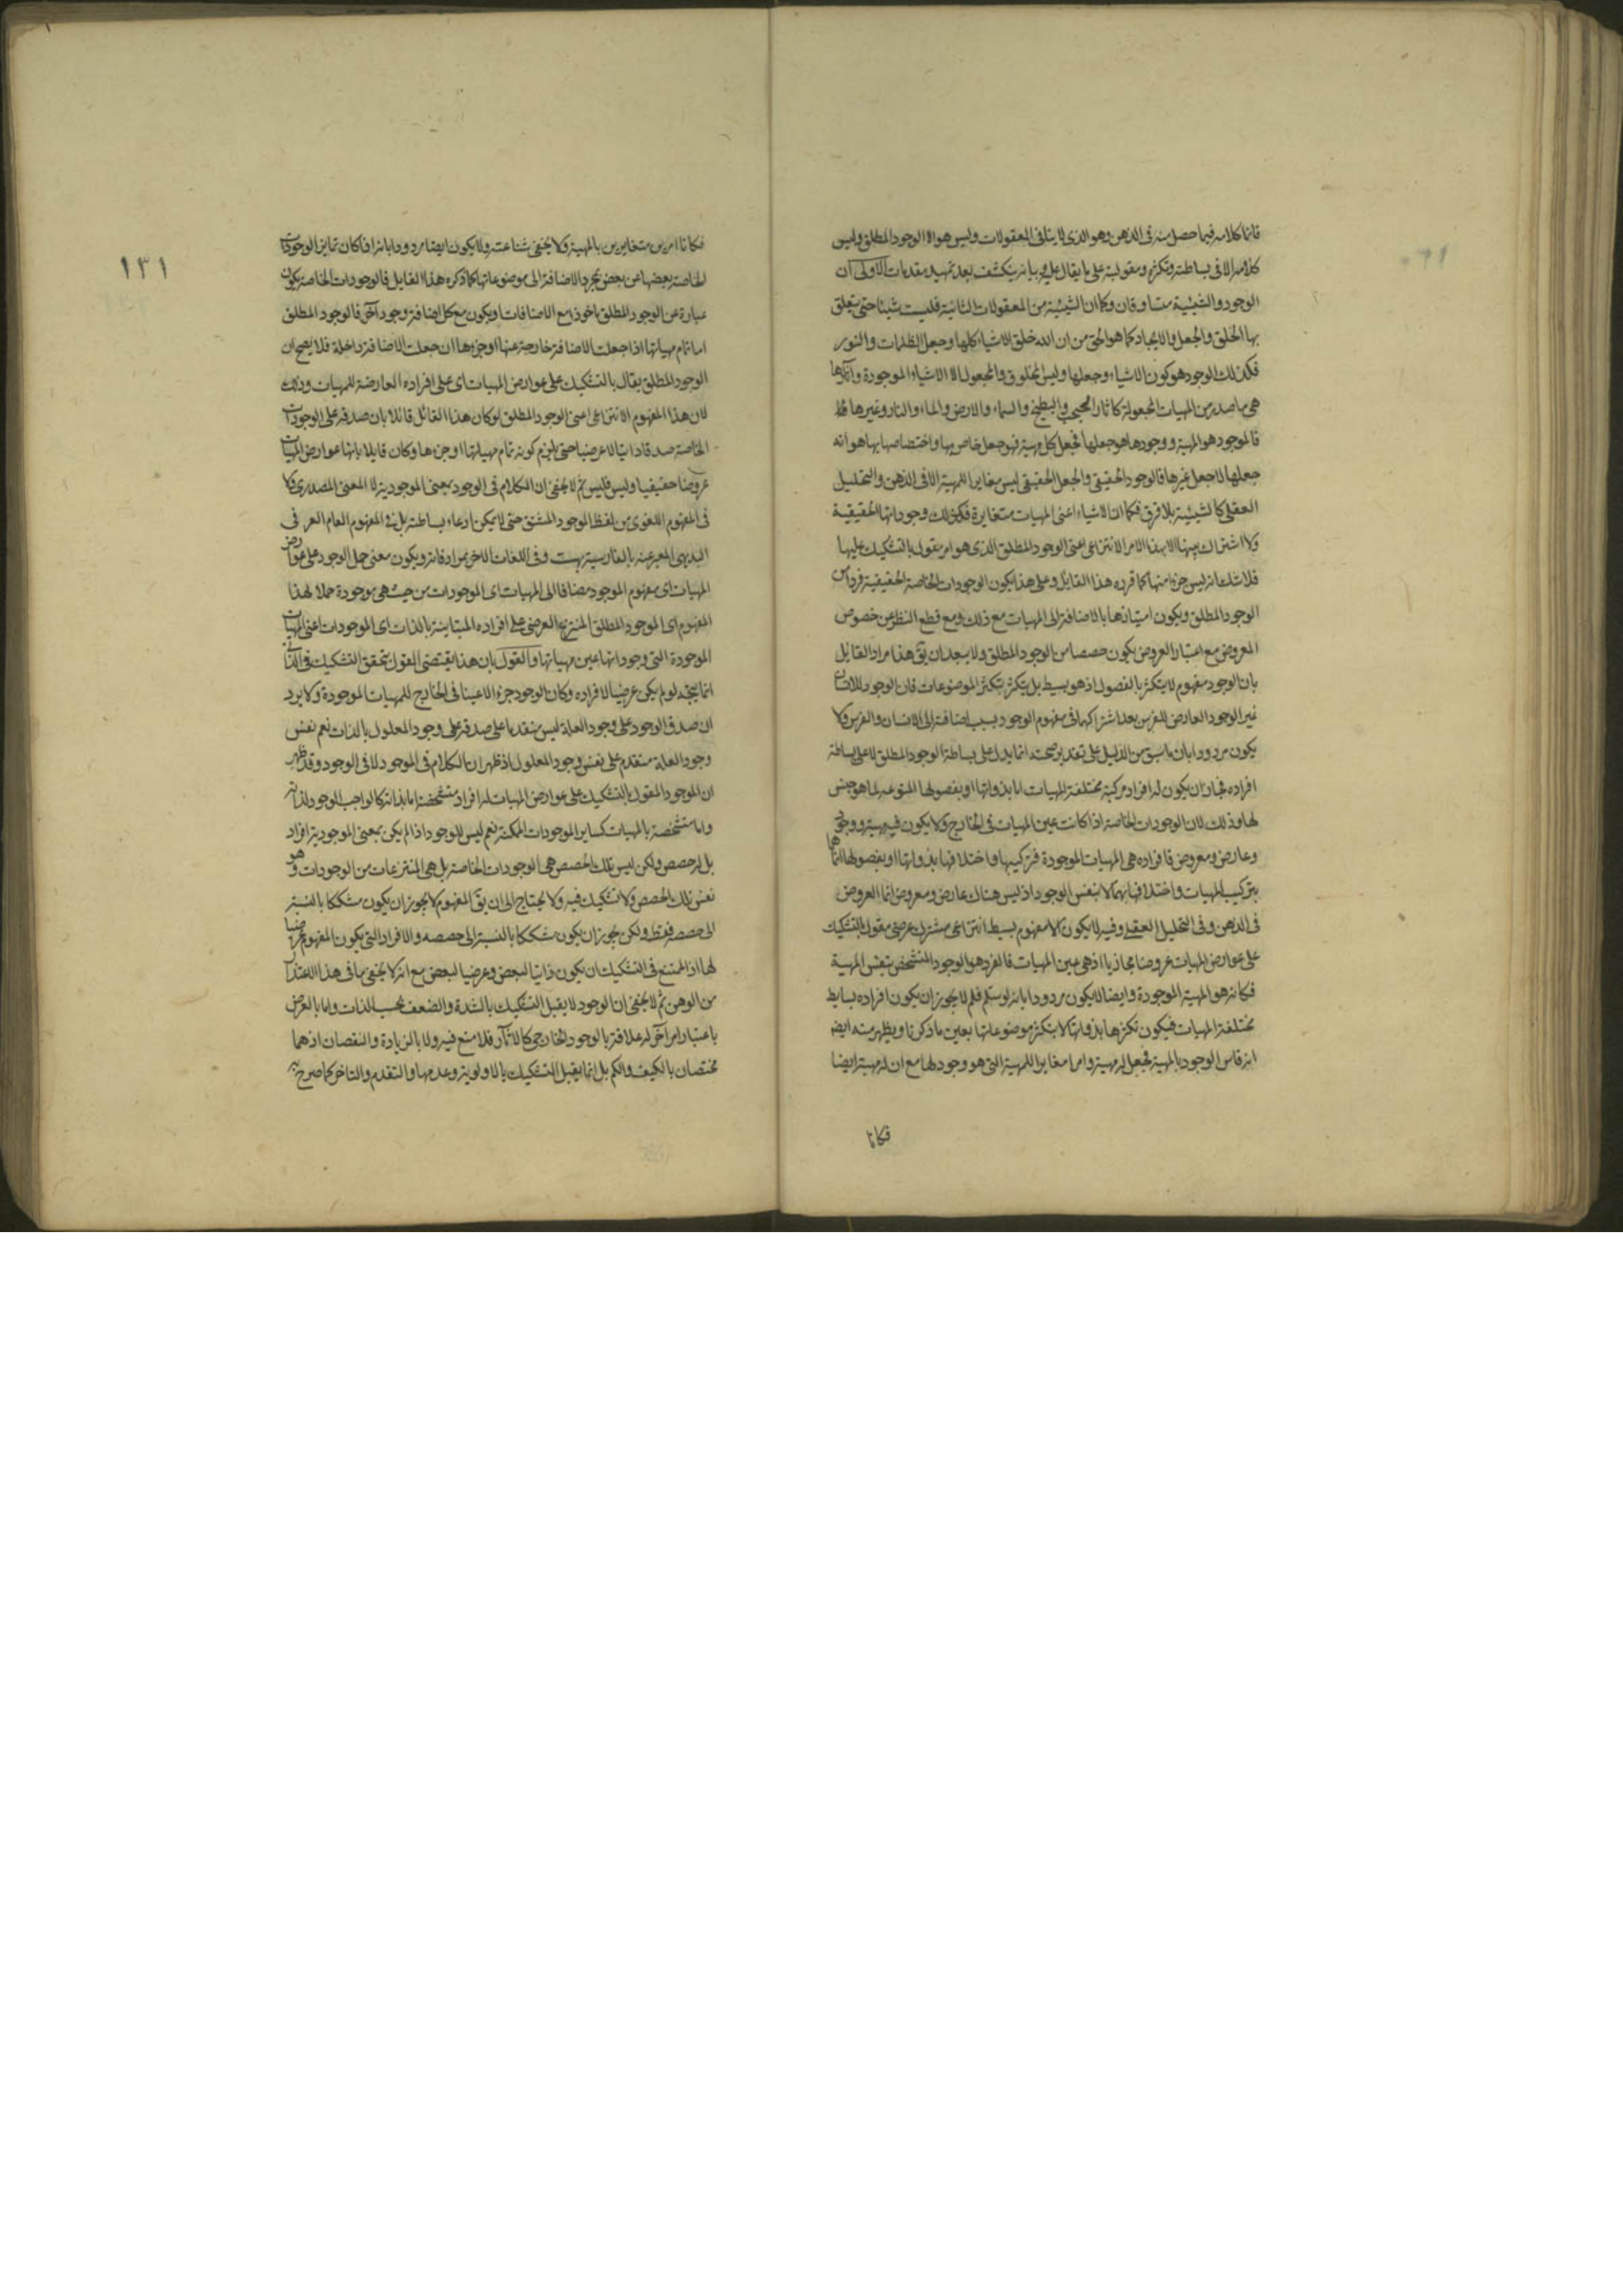 فانما كلامه فيما حصل منه فى الذهن وهو الذى لا ينافى المعقولات وليس هو الا الوجود المطلق وليس
كلامه الا فى بساطته وتكثره ومقوليته على ما يقال عليه وبيانه ينكشف بعد تمهيد مقدمات الاولى ان
الوجود والشيئية متساوقان وكما ان الشيئية من المعقولات الثانية فليست شيئا حتى يتعلق
بها الخلق والجعل والايجاد كما هو الحق من ان الله خلق الاشياء كلها وجعل الظلمات والنور
فكذلك الوجود هو كون الاشياء وجعلها وليس المخلوق والمجعول الا الاشياء الموجودة وآثارها
هى ما صدر من المهيات المجعولة كآثار والبطيخ والسماء والارض والماء والنار وغيرها
فالموجود هو المهية ووجودها هو جعلها فجعل كل مهية فهو جعل خاص بها واختصاصها بها هو انه
جعلها لا جعل غيرها فالوجود الحقيقى والجعل الحقيقى ليس مغايرا للمهية الا فى الذهن والتحليل
العقلى كالشيئية بلا فرق فكما ان الاشياء اعنى المهيات متغايرة فكذلك وجوداتها الحقيقية
ولا اشتراك بينها الا بهذا الامر الانتزاعى اعنى الوجود المطلق الذى هو امر مقول بالتشكيك عليها
فلا تلعانه ليس جزءا منها كما قرره هذا القايل وعلى هذا يكون الوجودات الخاصة الحقيقية فرد من
الوجود المطلق ويكون امتيازها بالاضافة الى المهيات مع ذلك ومع قطع النظر عن خصوص
المعروض مع اعتبار العروض يكون حصصا من الوجود المطلق ولا يبعد ان يق هذا مراد القايل
بان الوجود مفهوم لا يتكثر بالفصول اذ هو بسيط بل يتكثر بتكثر الموضوعات فان الوجود للانسان
غير الوجود العارض للفرس بعد اشتراكهما فى مفهوم الوجود بسبب اضافته الى الانسان والفرس ولا
يكون مردودا بان ما سبق من الدليل على تقدير صحته انما يدل على بساطة الوجود المطلق لا على بساطة
افراده فجاز ان يكون له افراد مركبة مختلفة المهيات اما بذواتها او بفصولها المنوعة لما هو جنس
لها وذلك لان الوجودات الخاصة اذا كانت عين المهيات فى الخارج ولا يكون فيه مهية ووجود
وعارض ومعروض فافراده هى المهيات الموجودة فتركيبها واختلافها بذواتها او بفصولها انما
بتركيب المهيات واختلافها بهما لا بنفس الوجود اذ ليس هناك عارض ومعروض انما العروض
فى الذهن وفى التحليل العقلى وفيه لا يكون الا مفهوم بسيط انتزاعى مشترك عرضى مقول بالتشكيك
على عوارض المهيات عروضا مجازيا اذ هى عين المهيات فالفرد هو الوجود المتشخص بنفس المهية
فكانه هو المهية الموجودة وايضا لا يكون مردودا بانه لو سلم فلم لا يجوز ان يكون افراده بسايط
مختلفة المهيات فيكون تكثرها بذواتها لا بتكثر موضوعاتها بعين ما ذكرنا ويظهر منه ايضا
انه قاس الوجود بالمهية فجعل له مهية وامرا مغايرا للمهية التى هو وجود لها مع ان له مهية ايضا
فكانا
١٣١
فكانا امرين متغايرين بالمهية ولا يخفى شناعته ولا يكون ايضا مردودا بانه اذا كان تمايز الوجودات
الخاصة بعضها عن بعض بمجرد الاضافة الى موضوعاتها كما ذكره هذا القايل فالوجودات الخاصة يكون
عبارة عن الوجود المطلق ماخوذا مع الاضافات ويكون مع كل اضافة وجود آخر فالوجود المطلق
اما تمام مهياتها اذا جعلت الاضافة خارجة عنها او جزؤها ان جعلت الاضافة داخلة فلا يصح ان
الوجود المطلق يقال بالتشكيك على عوارض المهيات اى على افراده العارضة للمهيات وذلك
لان هذا المفهوم الانتزاعى اعنى الوجود المطلق لو كان هذا القائل قائلا بان صدقه على الوجودات
الخاصة صدقا ذاتيا لا عرضيا حتى يلزم كونه تمام مهياتها او جزءها وكان قايلا بانها عوارض المهيات
عروضا حقيقيا وليس فليس ثم لا يخفى ان الكلام فى الوجود بمعنى الموجودية لا المعنى المصدرى ولا
فى المفهوم اللغوى من لفظ الموجود المشتق حتى لا يمكن ادعاء بساطته بل فى المفهوم العام العرفى
البديهى المعبر عنه بالفارسية بهست وفى اللغات الاخر بمرادفاته ويكون معنى حمل الوجود على عوارض
المهيات اى مفهوم الموجود مضافا الى المهيات اى الموجودات من حيث هى موجودة حملا لهذا
المفهوم اى الموجود المطلق المنتزع العرضى على افراده المتباينة بالذات اى الموجودات اعنى المهيات
الموجودة التى وجوداتها عين مهياتها والقول بان هذا يقتضى القول بتحقق التشكيك فى الذاتى
انما يتجه لو لم يكن عرضيا لافراده وكان الوجود جزءا لاعيننا فى الخارج للمهيات الموجودة ولا يرد
ان صدق الوجود على وجود العلة ليس متقدما على صدقه على وجود المعلول بالذات نعم نفس
وجود العلة متقدم على نفس وجود المعلول اذ ظهر ان الكلام فى الموجود لا فى الوجود وقد ظهر
ان الموجود المقول بالتشكيك على عوارض المهيات له افراد متشخصة اما بذاته كالواجب الوجود لذاته
واما متشخصة بالمهيات كساير الموجودات الممكنة نعم ليس للوجود اذا لم يكن بمعنى الموجودية افراد
بل له حصص ولكن ليس تلك الحصص هى الوجودات الخاصة بل هى المنتزعات من الوجودات وهو
نفس تلك الحصص ولا تشكيك فيه ولا يحتاج الى ان يق المفهوم لا يجوز ان يكون مشككا بالنسبة
الى حصصه فقط ولكن يجوز ان يكون مشككا بالنسبة الى حصصه والافراد التى يكون المفهوم عرضيا
لها اذ الممتنع فى التشكيك ان يكون ذاتيا لبعض وعرضيا لبعض مع انه لا يخفى ما فى هذا الاعتذار
من الوهن ثم لا يخفى ان الوجود لا يقبل التشكيك بالشدة والضعف بحسب الذات واما بالعرض
باعتبار امر آخر له علاقة بالوجود الخارجى كالآثار فلا منع فيه ولا بالزيادة والنقصان اذ هما
مختصان بالكيف والكم بل انما يقبل التشكيك بالاولوية وعدمها والتقدم والتاخر كما صرح به